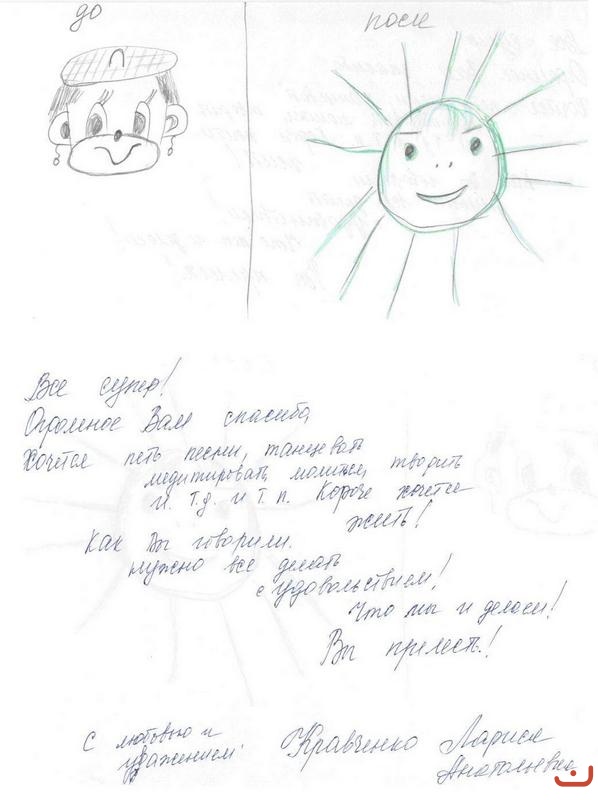 до
после
Все супер!
Огромное Вам спасибо,
Хочется петь песни, танцевать
медитировать, молиться, творить
и. т.д. и т.п. Короче хочется
жить!
Как Вы говорили.
нужно все делать
с удовольствием!
Что мы и делаем!
Вы прелесть!
С любовью и
уважением.
Кравченко Лариса
Анатольевна